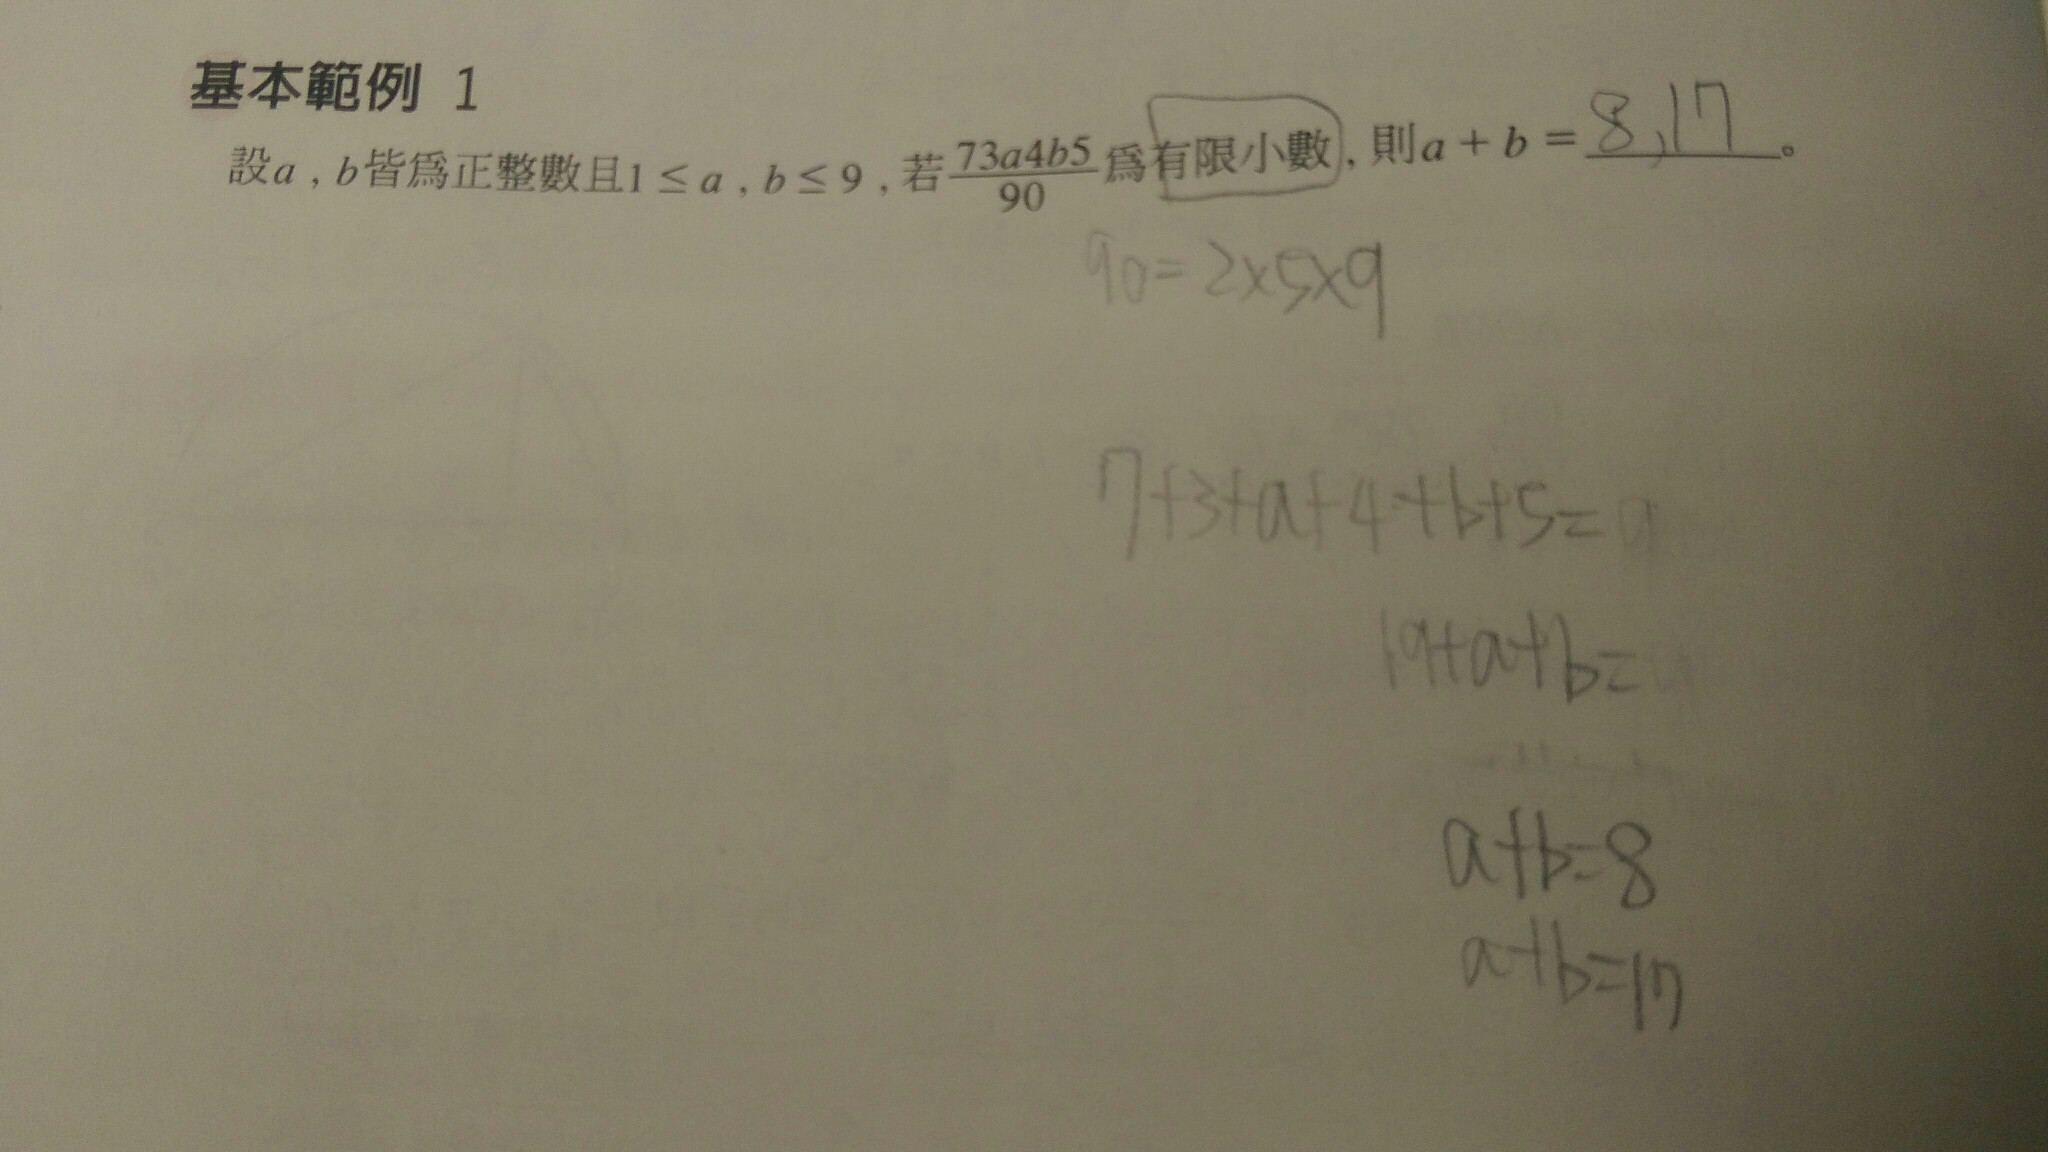 基本範例 1
設a，b皆為正整數且1≤a，b≤9，若73a4b5/90為有限小數，則a+b=8,17。
90=2×5×9
7+3+a+4+b+5=
19+a+b=
a+b=8
a+b=17